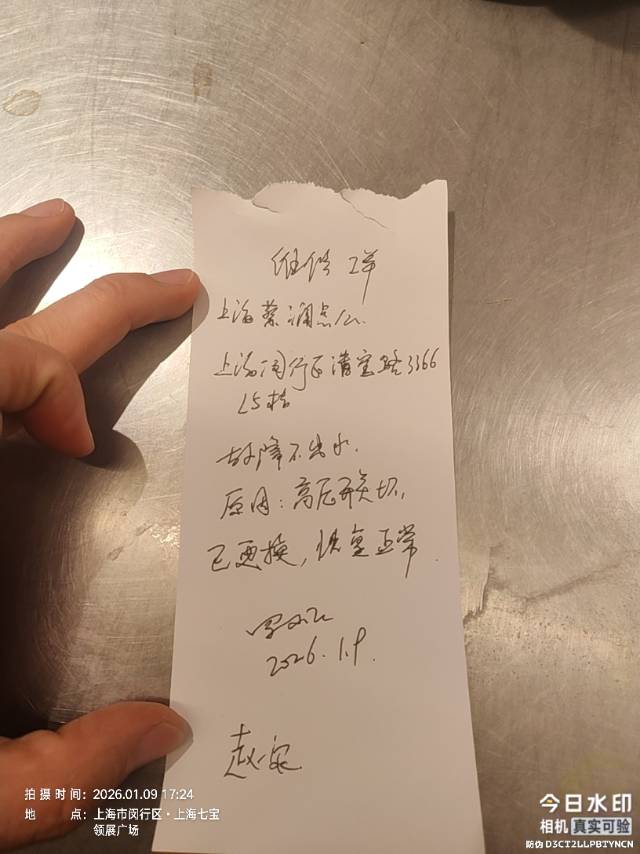 维修工单
上海蔡澜点心
上海闵行区漕宝路3366
L5楼
故障不出水.
原因：高压开关坏,
已更换，恢复正常.
2026.1.9.
赵
拍摄时间：2026.01.09 17:24
地点：上海市闵行区·上海七宝
领展广场
今日水印
相机 真实可验
防伪 D3CT2LLPBTYNCN